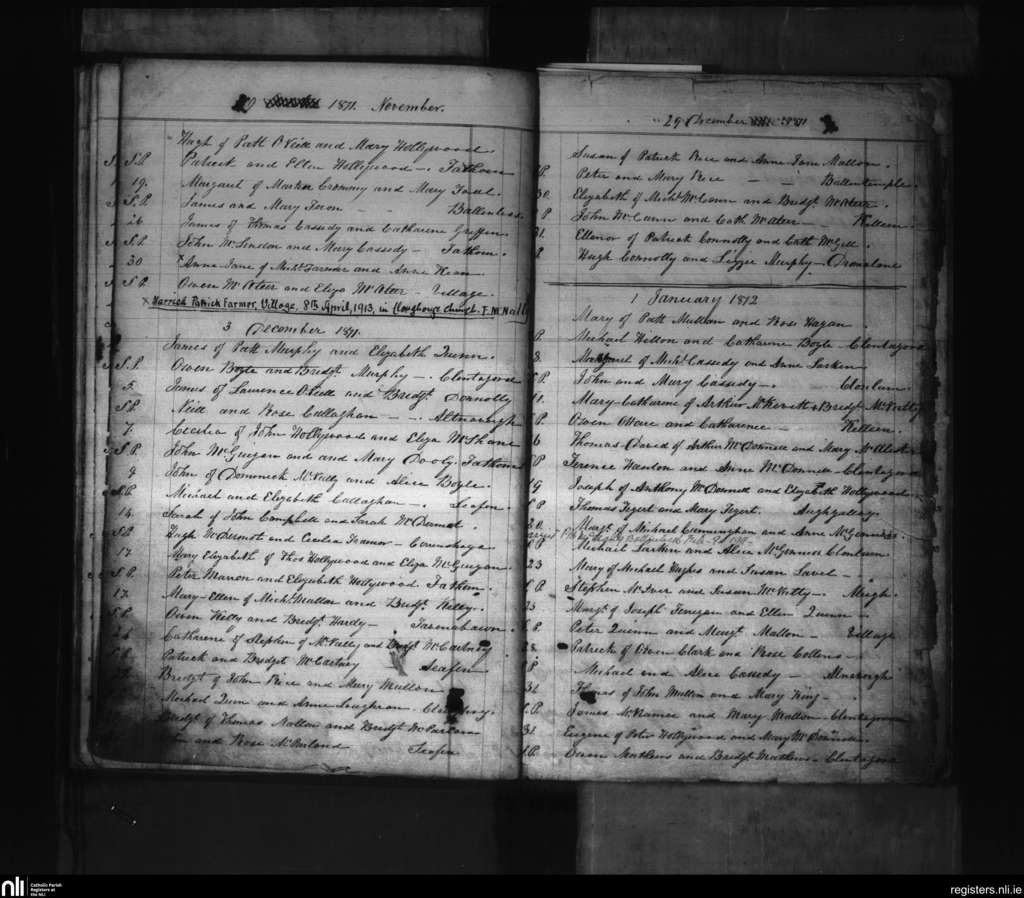 1871. November.
Hugh of Patk O'Neill and Mary Hollywood
S.P. Patrick and Ellen Hollywood - Fathom
19. Margaret of Markus Crommy and Mary
S.P. James and Mary
26 James of Thomas Cassedy and Catharine Griffin
S.P. John McLindon and Mary Cassedy - Fathom.
30 x Anne Jane of Michl. Farmer and Anne Kean
S.P. Owen McAteer and Eliza McAteer - Village.
x Married Patrick Farmer, Village, 8th April, 1913, in Cloughoge Church. F. McNally
3 December 1871.
James of Patk Murphy and Elizabeth Quinn.
S.P. Owen Boyle and Bridgt Murphy - Clontagora
5. James of Laurence O'Neill and Bridgt. Donnolly
S.P. Neill and Rose Callaghan - - Altnaveigh
7. Cecelia of John Hollywood and Eliza McShane
S.P. John McGuigan and and Mary Dooly. Fathom
John of Dominick McVitty and Alice Boyle
S.P. Michael and Elizabeth Callaghan - Seafin
14. Sarah of John Campbell and Sarah McDermot
S.P. Hugh McDermott and Cecelia
17. Mary Elizabeth of Thos Hollywood and Eliza McGuigan
S.P. Peter Marron and Elizabeth Hollywood Fathom
17. Mary-Ellen of Michl. Mallon and Bridgt. Kelly.
S.P. Owen Kelly and Bridgt. Hardy -
Catharene of Stephen of McVitty and Bridgt McCartney
S.P. Patrick and Bridget McCartney Seafin
Bridgt of John Rice and Mary Mullon
Michael Quin and Anne Loughran
Bridgt of Thomas Mallon and Bridgt McParlan
and Rose McParland Seafin
29 December 1871
Susan of Patrick Rice and Anne Jane Mallon.
P. Peter and Mary Rice - - Ballentemple.
30. Elizabeth of Michl. McCann and Bridgt. McAteer.
S.P. John McCann and Cath McAteer - Killeen.
31. Ellenor of Patrick Connolly and Cath. McGill.
P. Hugh Connolly and Lizzie Murphy - Dromalane
1 January 1872
Mary of Patk Mullan and Rose Hagan
P. Michael Hilton and Catharine Boyle - Clontagora
8. Margaret of Michl. Cassedy and Anne Larkin
S.P. John and Mary Cassedy - . Cloulum
Mary Catharine of Arthur McKevitt & Bridgt. McVitty
P. Owen O'Hare and Catharence - Killeen.
6 Thomas David of Arthur McDonnell and Mary
S.P. Terence Hanlon and Anne McDonnell - Clontagora
19 Joseph of Anthony McDonnell and Elizabeth Hollywood
S.P. Thomas Tegert and Mary Tegert. Aughyallog.
20 Margt. of Michael Cunningham and Anne McGenniss
S.P. Michael Larkin and Alice McGenniss Cloulum
23 Mary of Michael Hughes and Susan Savel - .
S.P. Stephen McIver and Susan McVitty - Meigh.
25 Margt. of Joseph Finegan and Ellen Quinn -
S.P. Peter Quinn and Margt. Mallon - Village
28. Patrick of Owen Clark and Rose Collens -
S.P. Michael and Alice Cassedy -
31 Thomas of John Mullen and Mary King -
S.P. James McNamee and Mary Mallon - Clontagora
31. Eugene of Peter Hollywood and Mary McDonnell.
S.P. Owen Mathews and Bridgt Mathews - Clontagora
nli Catholic Parish Registers at the NLI
registers.nli.ie